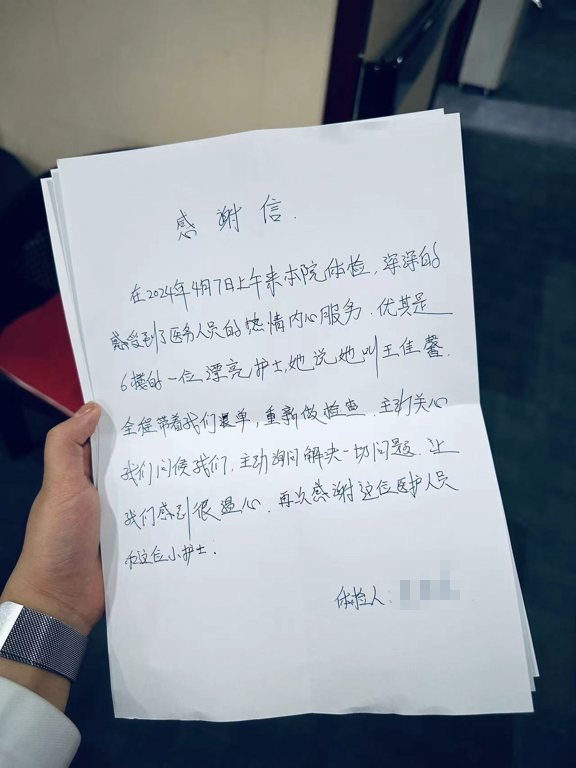 感谢信.
在2024年4月7日上午来本院体检,深深的
感受到了医务人员的热情内心服务.优其是
6楼的一位漂亮护士,她说她叫王佳馨.
全程带着我们退单,重新做检查.主动关心
我们问候我们.主动询问解决一切问题.让
我们感到很温心.再次感谢这位医护人员
和这位小护士.
体检人